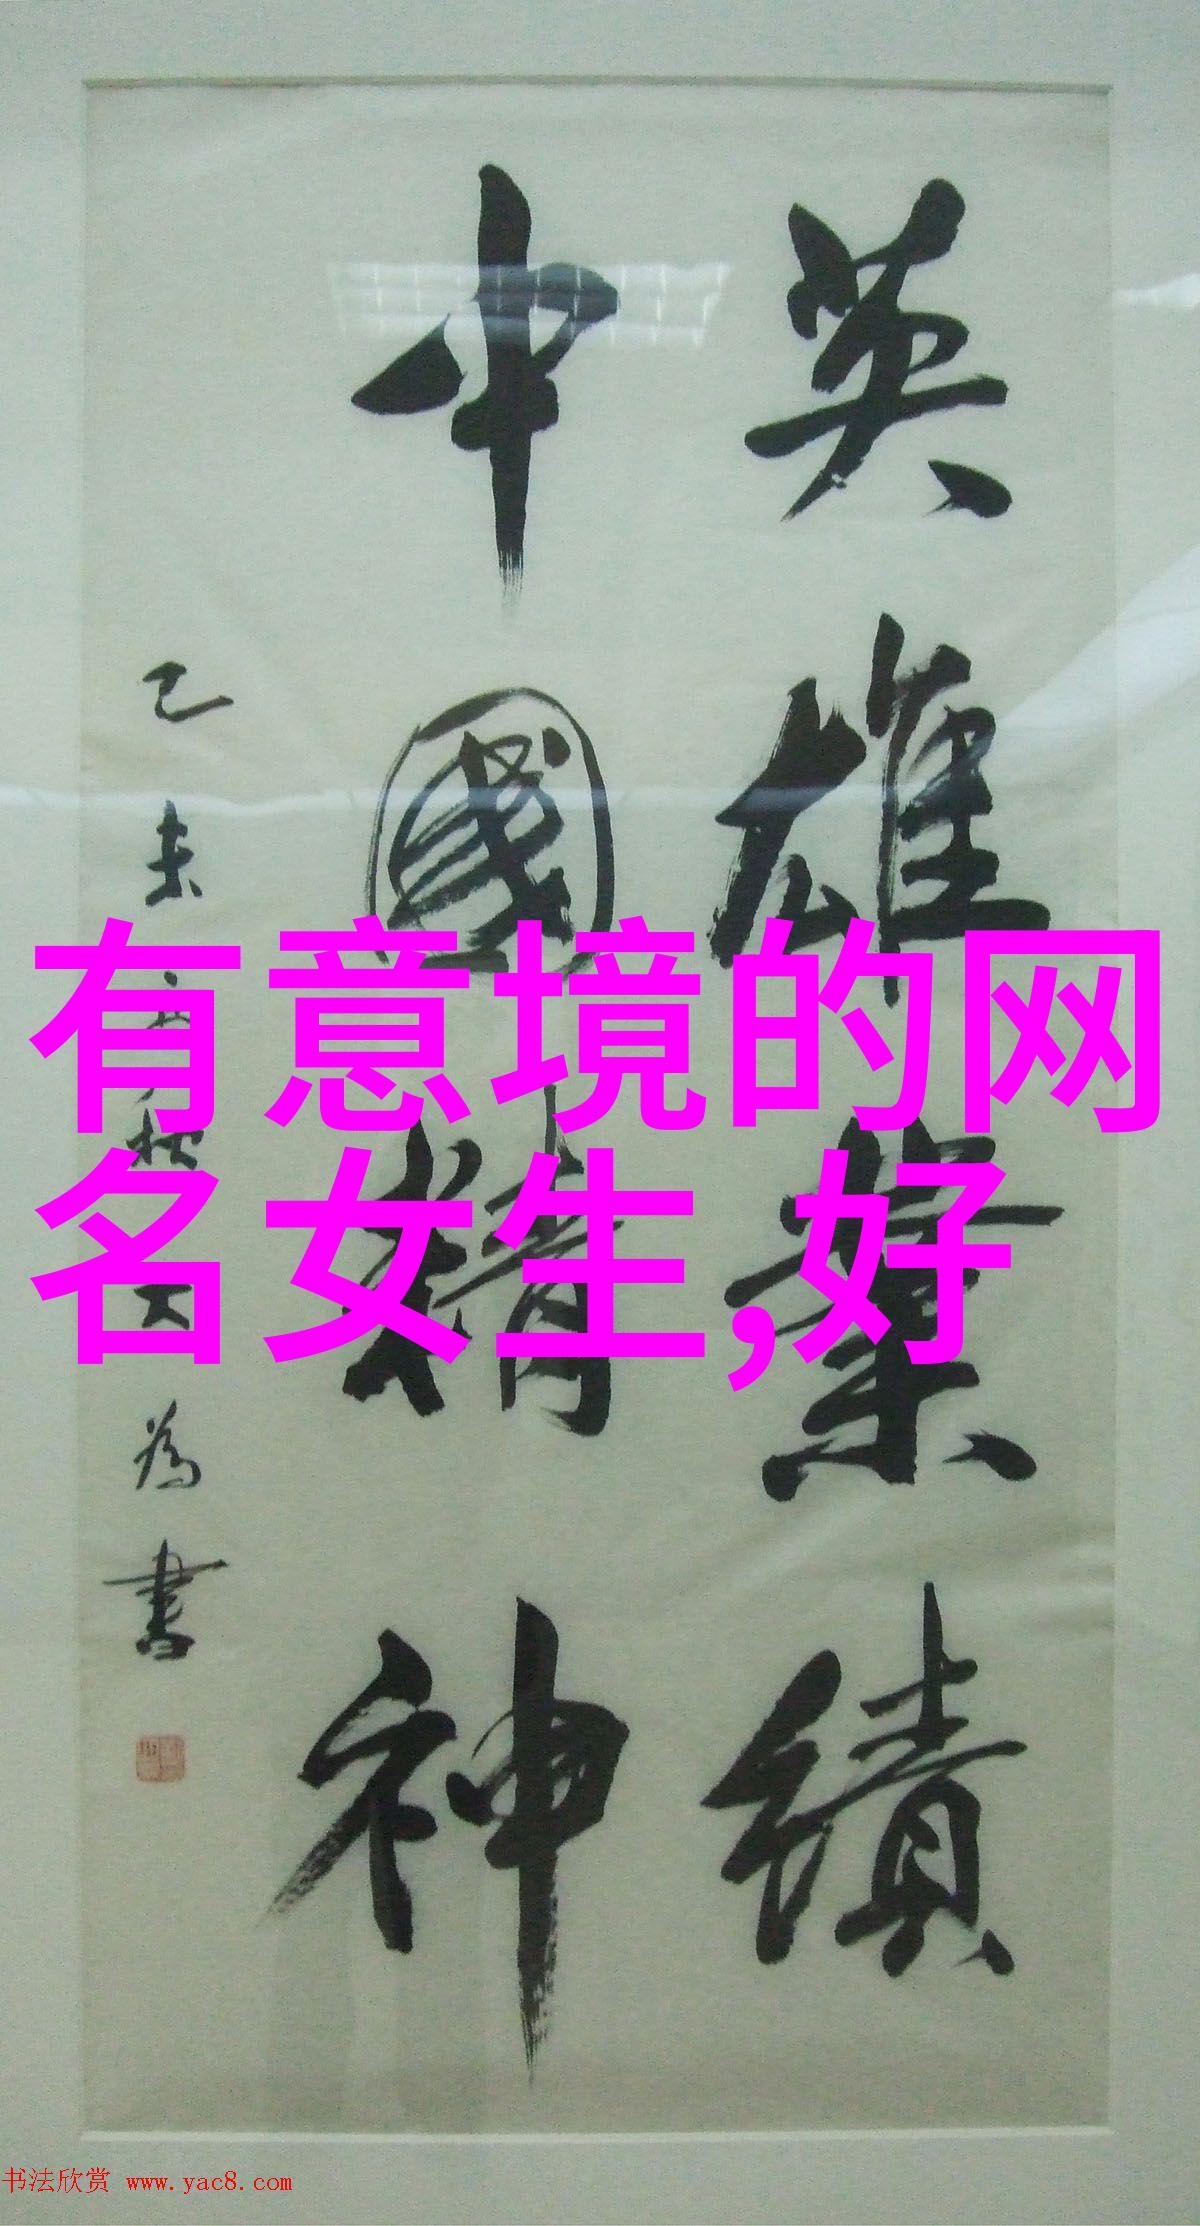 英雄業績
中國精神
乙未
秋
為書
有意境的网
名女生,好
书法欣赏 www.yac8.com